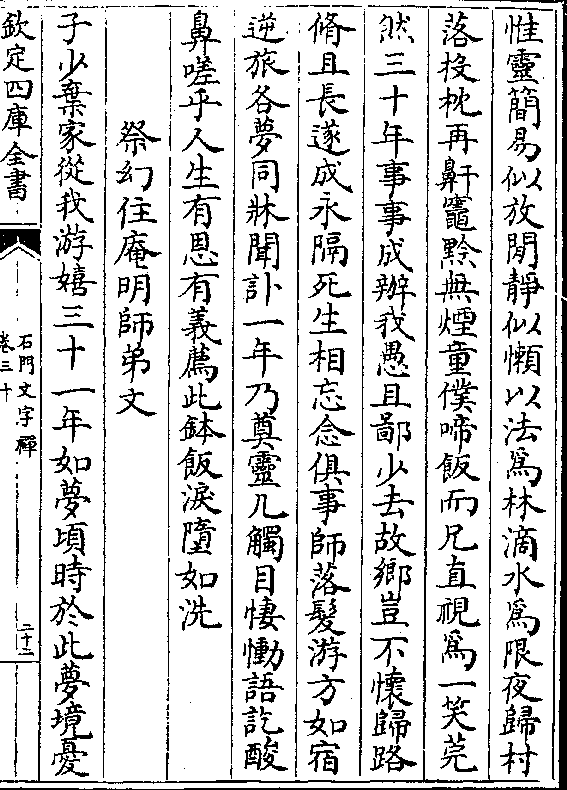 惟靈簡易似放閒靜似懶以法爲林滴水爲限夜歸村
落投枕再鼾竈黔無煙童僕啼飯而兄直視爲一笑莞
然三十年事事成辦我愚且鄙少去故鄉豈不懷歸路
脩且長遂成永隔死生相忘念俱事師落髮游方如宿
逆旅各夢同牀聞訃一年乃奠靈几觸目悽慟語訖酸
鼻嗟乎人生有恩有義薦此鉢飯淚墮如洗
祭幻住庵明師弟文
子少棄家從我游嬉三十一年如夢頃時於此夢境憂
欽定四庫全書
石門文字禪
卷三十
二十二